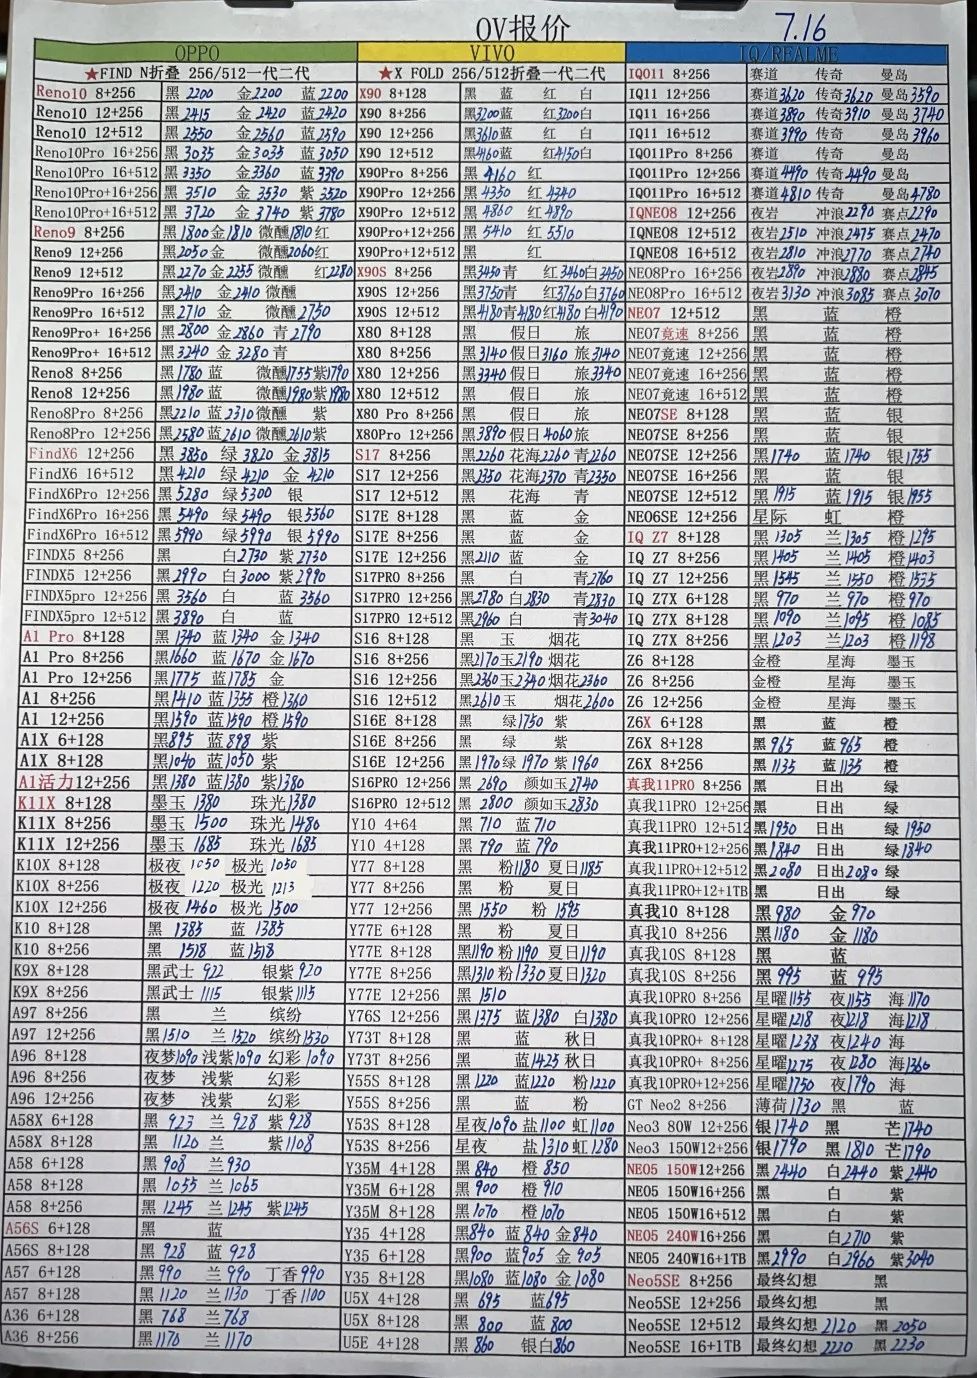 OV报价
7.16
OPPO
★FIND N折叠 256/512一代二代
Reno10 8+256 黑 2200 金2200 蓝2200
Reno10 12+256 黑 2415 金 2420 蓝2420
Reno10 12+512 黑 2550 金 2560 蓝2590
Reno10Pro 16+256 黑 3035 金3035 蓝3050
Reno10Pro 16+512 黑 3350 金3360 蓝3390
Reno10Pro+16+256 黑 3510 金 3530 紫3520
Reno10Pro+16+512 黑 3720 金 3740 紫3780
Reno9 8+256 黑1800金1810 微醺1810红
Reno9 12+256 黑2050金 微醺2060红
Reno9 12+512 黑2270金2255 微醺 红2280
Reno9Pro 16+256 黑2410 金2410 微醺
Reno9Pro 16+512 黑2710 金 微醺2750
Reno9Pro+ 16+256 黑2800 金2860 青2790
Reno9Pro+ 16+512 黑3240 金3280青
Reno8 8+256 黑1780 蓝 微醺1755紫1790
Reno8 12+256 黑1980 蓝 微醺1980紫1980
Reno8Pro 8+256 黑2210 蓝2310微醺 紫
Reno8Pro 12+256 黑2580 蓝2610 微醺2610紫
FindX6 12+256 黑 3850 绿 3820 金 3815
FindX6 16+512 黑4210 绿 4210 金 4210
FindX6Pro 12+256 黑 5280 绿5300 银
FindX6Pro 16+256 黑 5490 绿 5490 银5560
FindX6Pro 16+512 黑 5990 绿 5990 银 5990
FINDX5 8+256 黑 白2730 紫2730
FINDX5 12+256 黑 2990 白 3000 紫2990
FINDX5pro 12+256 黑 3560 白 蓝 3560
FINDX5pro 12+512 黑 3890 白 蓝
A1 Pro 8+128 黑 1340 蓝 1340 金 1340
A1 Pro 8+256 黑1660 蓝 1670 金1670
A1 Pro 12+256 黑1775 蓝1785 金
A1 8+256 黑1410 蓝1355 橙1360
A1 12+256 黑1590 蓝1590 橙1590
A1X 6+128 黑895 蓝898 紫
A1X 8+128 黑1040 蓝1050 紫
A1活力12+256 黑1380 蓝1380 紫1380
K11X 8+128 墨玉 1380 珠光1380
K11X 8+256 墨玉 1500 珠光1480
K11X 12+256 墨玉 1685 珠光1685
K10X 8+128 极夜 1050 极光 1050
K10X 8+256 极夜 1220 极光 1213
K10X 12+256 极夜 1460 极光 1500
K10 8+128 黑 1385 蓝 1385
K10 8+256 黑 1518 蓝1518
K9X 8+128 黑武士 922 银紫920
K9X 8+256 黑武士 1115 银紫1115
A97 8+256 黑 兰 缤纷
A97 12+256 黑1510 兰 1520 缤纷1530
A96 8+128 夜梦1090 浅紫1090 幻彩 1090
A96 8+256 夜梦 浅紫 幻彩
A96 12+256 夜梦 浅紫 幻彩
A58X 6+128 黑 923 兰 928 紫 928
A58X 8+128 黑 1120 兰 紫1108
A58 6+128 黑 908 兰930
A58 8+128 黑 1055 兰1065
A58 8+256 黑 1245 兰1245 紫1245
A56S 6+128 黑 蓝
A56S 8+128 黑 928 蓝 928
A57 6+128 黑990 兰 990 丁香990
A57 8+128 黑 1120 兰 1130 丁香1100
A36 6+128 黑 768 兰768
A36 8+256 黑1170 兰1170
VIVO
★X FOLD 256/512折叠一代二代
X90 8+128 黑 蓝 红 白
X90 8+256 黑3200蓝 红3200白
X90 12+256 黑3610蓝 红 白
X90 12+512 黑4160蓝 红4150白
X90Pro 8+256 黑 4160 红
X90Pro 12+256 黑4350 红 4340
X90Pro 12+512 黑 4860 红 4890
X90Pro+12+256 黑 5410 红 5510
X90Pro+12+512 黑 红
X90S 8+256 黑3450青 红3460白3450
X90S 12+256 黑3750青 红3760白3760
X90S 12+512 黑4180青4180红4180白4190
X80 8+128 黑 假日 旅
X80 8+256 黑3140假日3160 旅3140
X80 12+256 黑3340假日 旅3340
X80 12+512 黑 假日 旅
X80 Pro 8+256 黑 假日 旅
X80Pro 12+256 黑3890假日4060旅
S17 8+256 黑2260 花海2260 青2260
S17 12+256 黑2350 花海2370 青2350
S17 12+512 黑 花海 青
S17E 8+128 黑 蓝 金
S17E 8+256 黑 蓝 金
S17E 12+256 黑2110 蓝 金
S17PRO 8+256 黑 白 青2760
S17PRO 12+256 黑2780 白2830 青2830
S17PRO 12+512 黑2960 白 青3040
S16 8+128 黑 玉 烟花
S16 8+256 黑2170玉2190 烟花
S16 12+256 黑2360玉2340烟花2360
S16 12+512 黑2610玉 烟花2600
S16E 8+128 黑 绿1750 紫
S16E 8+256 黑 绿 紫
S16E 12+256 黑1970绿 1970 紫 1960
S16PRO 12+256 黑 2690 颜如玉2740
S16PRO 12+512 黑 2800 颜如玉2830
Y10 4+64 黑 710 蓝710
Y10 4+128 黑 790 蓝 790
Y77 8+128 黑 粉1180 夏日1185
Y77 8+256 黑 粉 夏日
Y77 12+256 黑 1550 粉 1595
Y77E 6+128 黑 粉 夏日
Y77E 8+128 黑1190 粉1190 夏日1190
Y77E 8+256 黑1310 粉1330夏日1320
Y77E 12+256 黑 1510
Y76S 12+256 黑1375 蓝1380 白1380
Y73T 8+128 黑 蓝 秋日
Y73T 8+256 黑 蓝1425 秋日
Y55S 8+128 黑 1220 蓝1220 粉1220
Y55S 8+256 黑 蓝 粉
Y53S 8+128 星夜1090 盐1100 虹1100
Y53S 8+256 星夜 盐1310虹1280
Y35M 4+128 黑 840 橙 850
Y35M 6+128 黑 900 橙 910
Y35M 8+128 黑1070 橙1070
Y35 4+128 黑840 蓝840金840
Y35 6+128 黑900 蓝905 金 905
Y35 8+128 黑1080 蓝1080 金1080
U5X 4+128 黑 695 蓝695
U5X 8+128 黑 800 蓝 800
U5E 4+128 黑 860 银白860
IQ/REALME
IQO11 8+256 赛道 传奇 曼岛
IQ11 12+256 赛道3620 传奇3620 曼岛3590
IQ11 16+256 赛道3890 传奇3910 曼岛3740
IQ11 16+512 赛道3990 传奇 曼岛3960
IQO11Pro 8+256 赛道 传奇 曼岛
IQO11Pro 12+256 赛道4490传奇4490 曼岛
IQO11Pro 16+512 赛道4810传奇 曼岛4780
IQNEO8 12+256 夜岩 冲浪2290 赛点2290
IQNEO8 12+512 夜岩2510 冲浪2475 赛点2470
IQNEO8 16+512 夜岩2810 冲浪2770 赛点2740
NEO8Pro 16+256 夜岩2890 冲浪2880 赛点2845
NEO8Pro 16+512 夜岩3130 冲浪3085 赛点3070
NEO7 12+512 黑 蓝 橙
NEO7竟速 8+256 黑 蓝 橙
NEO7竟速 12+256 黑 蓝 橙
NEO7竟速 16+256 黑 蓝 橙
NEO7竟速 16+512 黑 蓝 橙
NEO7SE 8+128 黑 蓝 银
NEO7SE 8+256 黑 蓝 银
NEO7SE 12+256 黑1740 蓝1740 银1755
NEO7SE 16+256 黑 蓝 银
NEO7SE 12+512 黑1915 蓝1915 银1955
NEO6SE 12+256 星际 虹 橙
IQ Z7 8+128 黑1305 兰1305 橙1295
IQ Z7 8+256 黑1405 兰1405 橙1403
IQ Z7 12+256 黑1545 兰1550 橙1535
IQ Z7X 6+128 黑 970 兰 970 橙970
IQ Z7X 8+128 黑1090 兰1095 橙1085
IQ Z7X 8+256 黑1203 兰1203 橙1198
Z6 8+128 金橙 星海 墨玉
Z6 8+256 金橙 星海 墨玉
Z6 12+256 金橙 星海 墨玉
Z6X 6+128 黑 蓝 橙
Z6X 8+128 黑965 蓝965 橙
Z6X 8+256 黑1135 蓝1135 橙
真我11PRO 8+256 黑 日出 绿
真我11PRO 12+256 黑 日出 绿
真我11PRO 12+512 黑1950 日出 绿 1950
真我11PRO+12+256 黑1840 日出 绿1840
真我11PRO+12+512 黑2080 日出2080 绿
真我11PRO+12+1TB 黑 日出 绿
真我10 8+128 黑980 金970
真我10 8+256 黑1180 金1180
真我10S 8+128 黑 蓝
真我10S 8+256 黑995 蓝 995
真我10PRO 8+256 星曜1155 夜1155 海1170
真我10PRO 12+256 星曜1218 夜1218 海1218
真我10PRO+ 8+128 星曜1238 夜1240 海
真我10PRO+ 8+256 星曜1275 夜1280 海1360
真我10PRO+12+256 星曜1750 夜1790 海
GT Neo2 8+256 薄荷1730 黑 蓝
Neo3 80W 12+256 银1740 黑 芒1740
Neo3 150W12+256 银1790 黑1810 芒1790
NEO5 150W12+256 黑2440 白2440 紫2440
NEO5 150W16+256 黑 白 紫
NEO5 150W16+512 黑 白 紫
NEO5 240W16+256 黑 白2710 紫
NEO5 240W16+1TB 黑2990 白2960 紫3040
Neo5SE 8+256 最终幻想 黑
Neo5SE 12+256 最终幻想 黑
Neo5SE 12+512 最终幻想 2120 黑 2050
Neo5SE 16+1TB 最终幻想 2220 黑 2230